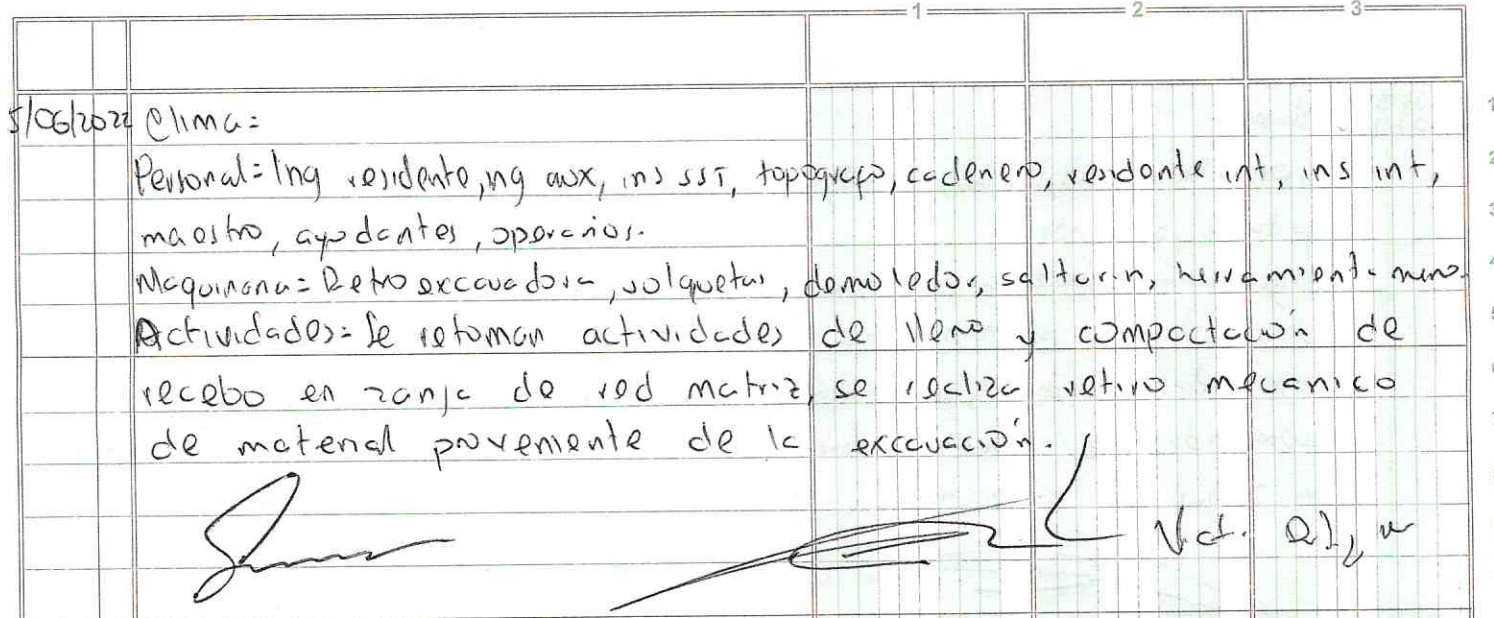 1 2 3
5/06/2022 Clima:
Personal: Ing residente, ing aux, ins SST, topografo, cadenero, residente int, ins int,
maestro, ayudantes, operarios.
Maquinaria: Retroexcavadora, volquetas, demoledor, saltarin, herramienta menor
Actividades: Se retoman actividades de lleno y compactación de
recebo en zanja de red matriz, se realiza retiro mecanico
de material proveniente de la excavación.
1
2
3
4
5